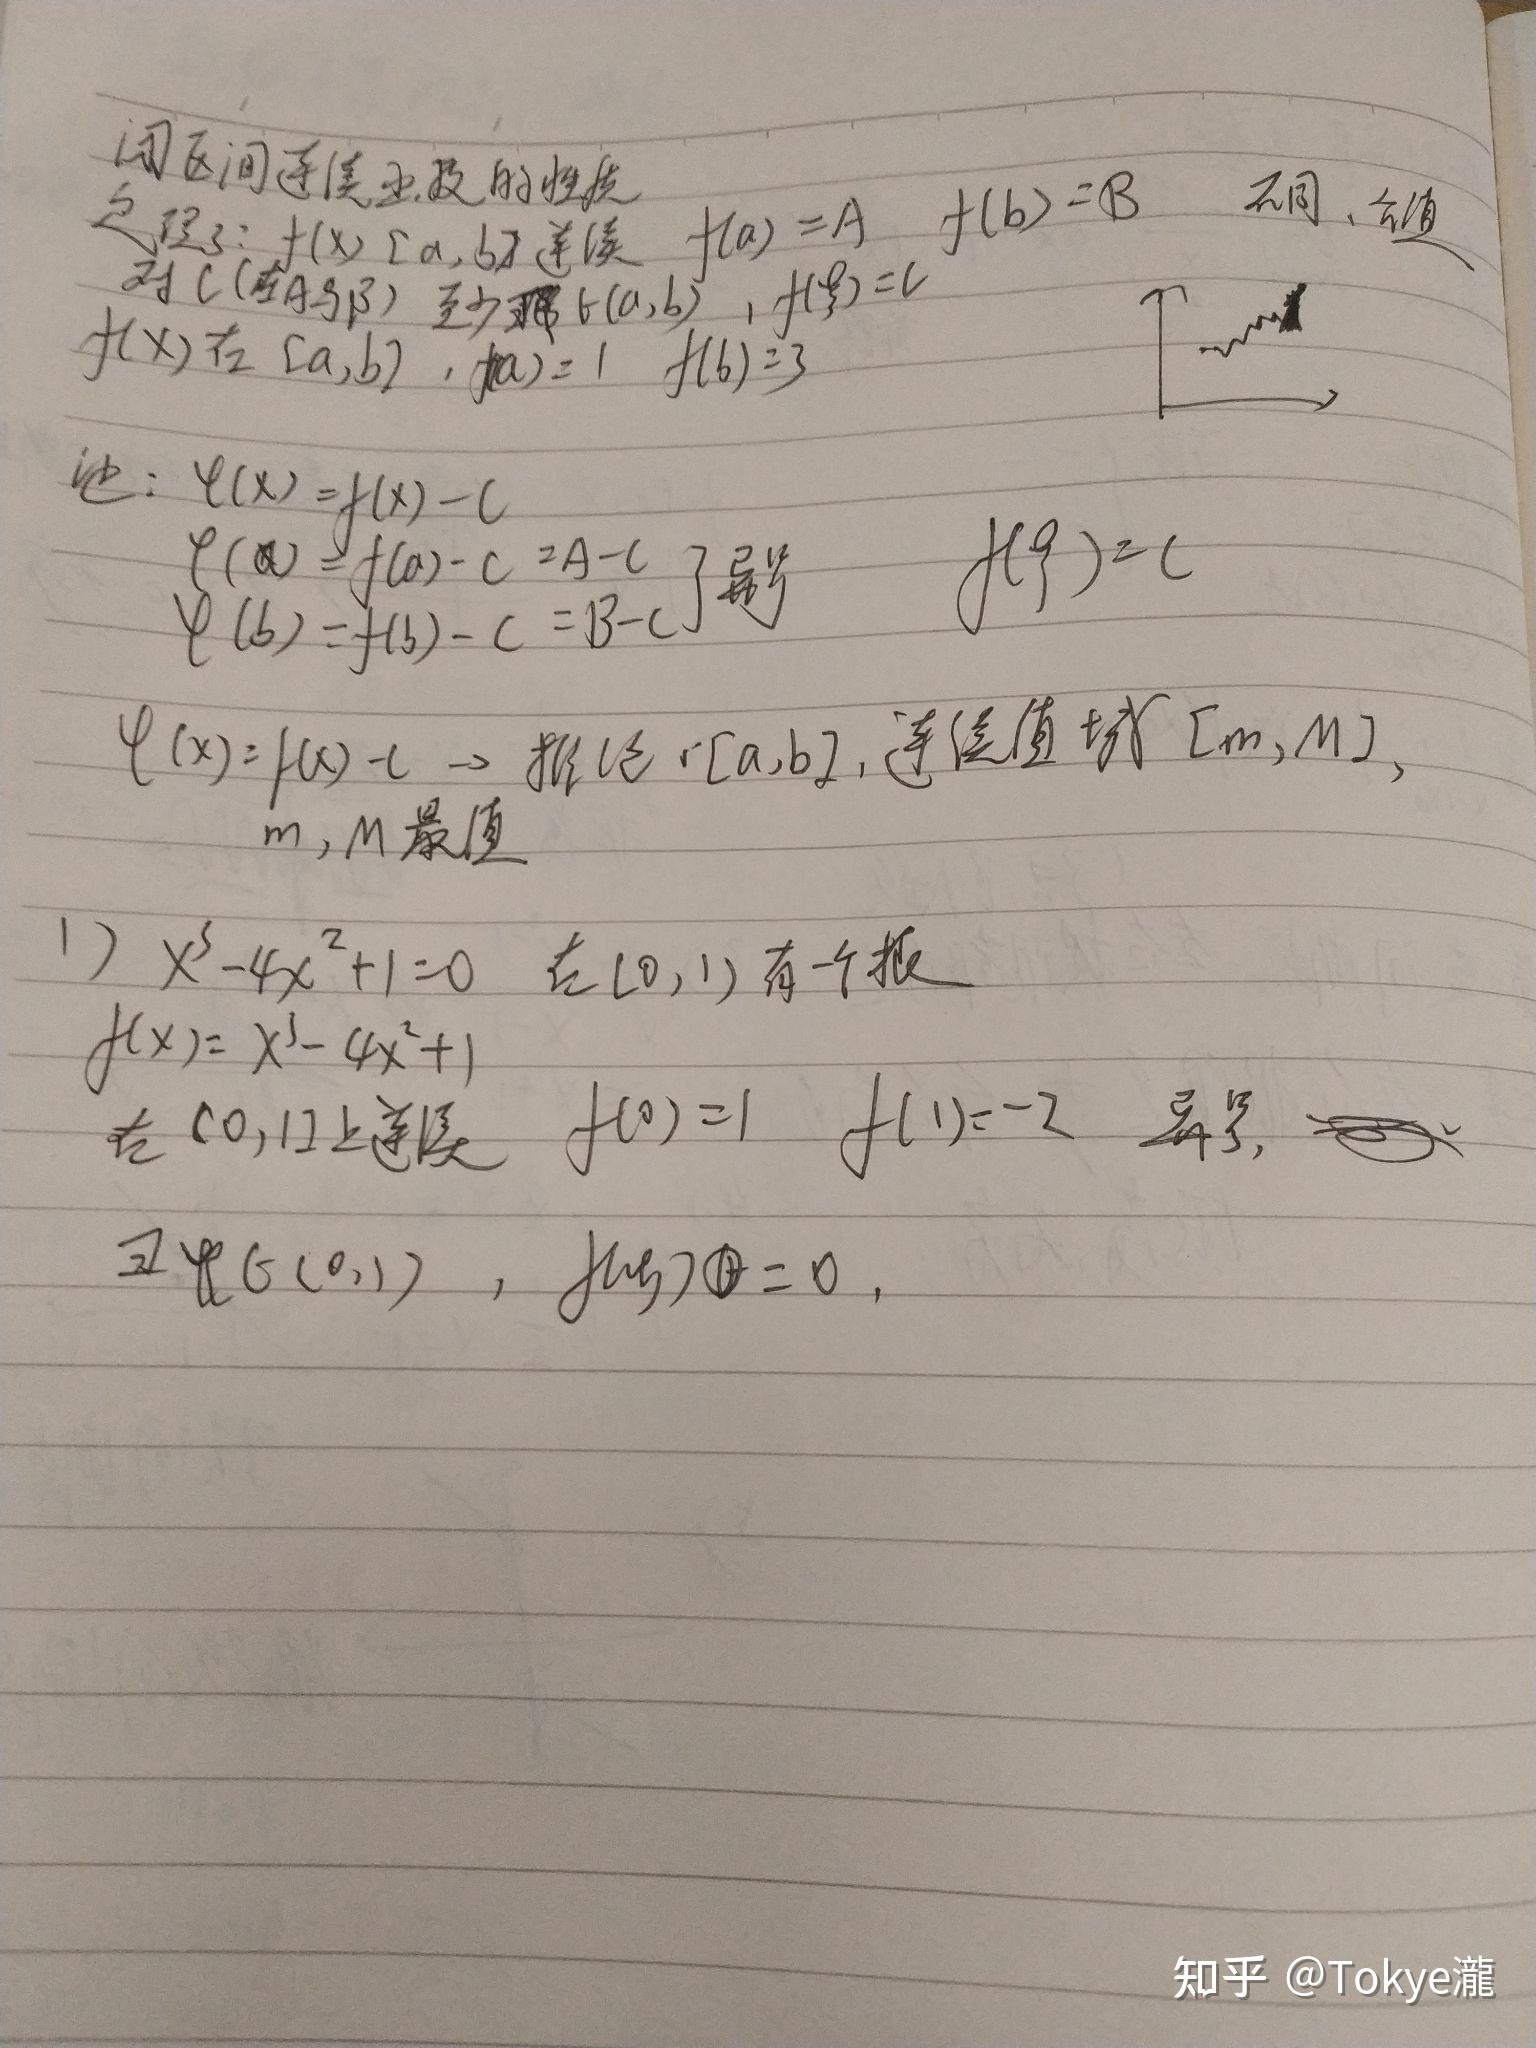 闭区间连续函数的性质
定理3: f(x) [a,b]连续 f(a)=A f(b)=B 不同、介值
对C(在A与B) 至少 ∈(a,b), f(ξ)=C
f(x)在[a,b], f(a)=1 f(b)=3
证: φ(x)=f(x)-C
φ(a)=f(a)-C=A-C
φ(b)=f(b)-C=B-C } 异号 f(ξ)=C
φ(x)=f(x)-C → 推论:[a,b], 连续值域[m,M],
m,M最值
1) x³-4x²+1=0 在(0,1)有一个根
f(x)=x³-4x²+1
在[0,1]上连续 f(0)=1 f(1)=-2 异号,
∃ξ∈(0,1), f(ξ)=0,
知乎 @Tokye瀧